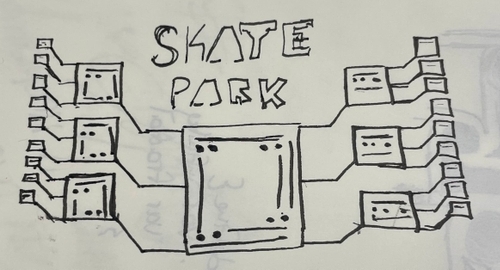 SKATE
PARK